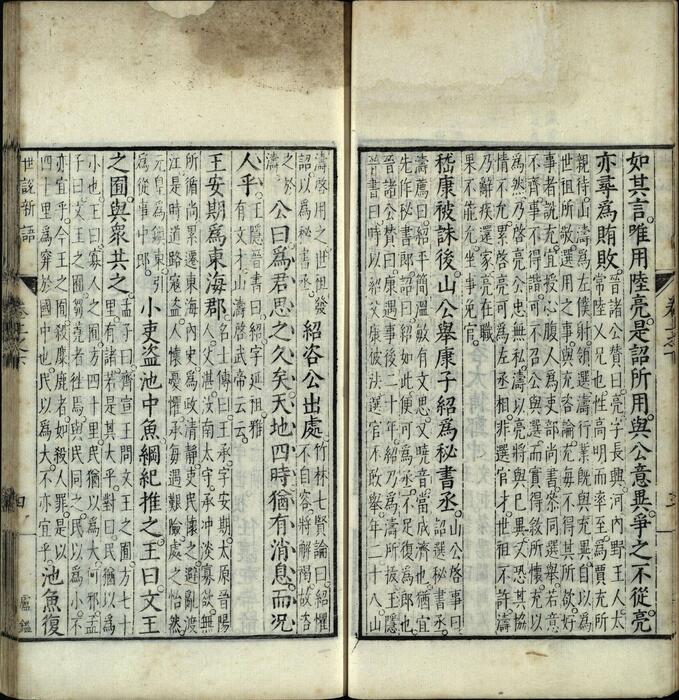 如其言唯用陸亮是詔所用與公意異爭之不從亮
亦尋為賄敗
晉諸公贊曰亮字長興河內野王人太
常陸乂兄也性高明而率至為賈充所
親待山濤為左僕射領選濤行業旣與充異自以為
世祖所敬選用之事與充咨論充每不得其所欲好
事者說充宜授心腹人為吏部尚書參同選舉若意
不齊事不得諧可不召公與選而實得敘所懷充以
為然乃啓亮公忠無私濤以亮將與已異又恐其協
情不允累啓亮可為左丞相非選官才世祖不許濤
乃辭疾還家亮在職
果不能允坐事免官
嵇康被誅後山公舉康子紹為秘書丞
山公啓事曰
詔選秘書丞
濤薦曰紹平簡溫敏有文思又曉音當成濟也猶宜
先作秘書郎詔曰紹如此便可為丞不足復為郎也
晉諸公贊曰康遇事後二十年紹乃為濤所拔王隱
晉書曰時以紹父康被法選官不敢舉年二十八山
濤啓用之世祖發
詔以為秘書丞
紹咨公出處
竹林七賢論曰紹懼
不自容將解褐故咨
之於
濤
公曰為君思之久矣天地四時猶有消息而況
人乎
王隱晉書曰紹字延祖雅
有文才山濤啓武帝云云
王安期為東海郡
名士傳曰王承字安期太原晉陽
人父湛汝南太守承沖淡寡欲無
所循尚累遷東海內史為政清靜吏民懷之避亂渡
江是時道路寇盜人懷憂懼承每遇艱險處之怡然
元皇為鎮東引
為從事中郎
小吏盜池中魚綱紀推之王曰文王
之囿與眾共之
孟子曰齊宣王問文王之囿方七十
里有諸若是其大乎對曰民猶以為
小也王曰寡人之囿方四十里民猶以為大何邪孟
子曰文王之囿芻蕘者往焉與民同之民以為小不
亦宜乎今王之囿殺麋鹿者如殺人罪是以
四十里為穽於國中也民以為大不亦宜乎
池魚復
世說新語
卷上之下
四
盧鑑